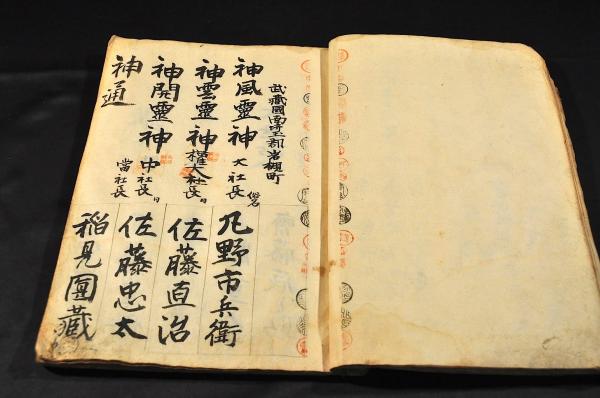 武藏國南埼玉郡岩槻町
神風靈神 大社長
神雲靈神 權大社長
神開靈神 中社長
神通 當社長
凢野市兵衛
佐藤直治
佐藤忠太
稲見團藏